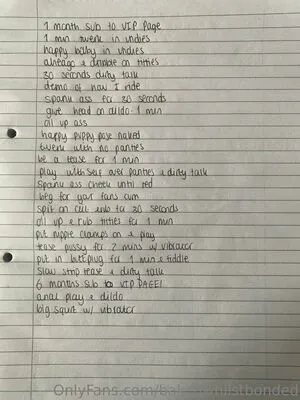 1 month sub to VIP Page
1 min twerk in undies
happy baby in undies
ahegao & dribble on titties
30 seconds dirty talk
demo of how I ride
spank ass for 30 seconds
give head on dildo 1 min
oil up ass
happy puppy pose naked
twerk with no panties
be a tease for 1 min
play with self over panties & dirty talk
spank ass cheek until red
beg for your fans cum
spit on clit & rub for 30 seconds
oil up & rub titties for 1 min
put nipple clamps on & play
tease pussy for 2 mins w/ vibrator
put in buttplug for 1 min & fiddle
slow strip tease & dirty talk
6 months sub to VIP PAGE!
anal play & dildo
big squirt w/ vibrator
OnlyFans.com/